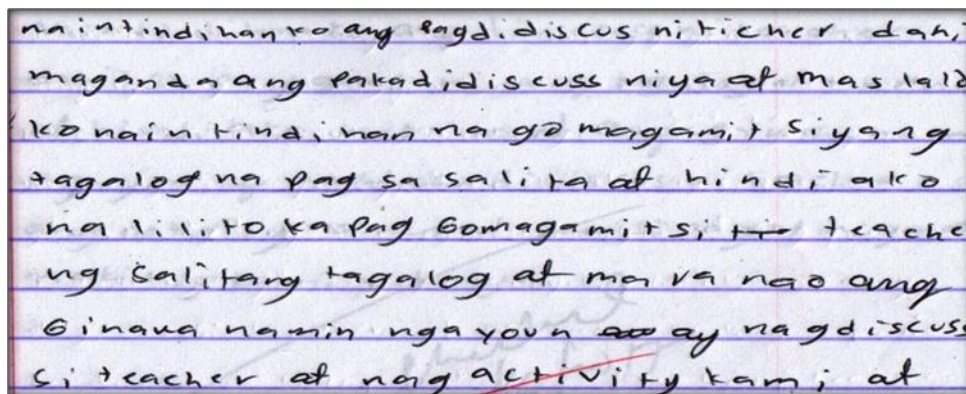 naintindihan ko ang Pagdidiscus niticher dahi
maganda ang Pakadidiscuss niya at mas lalo
ko naintindihan na gomagamit siyang
tagalog na pag sasalita at hindi ako
nalilito kapag Gomagamit si teache
ng Salitang tagalog at
Ginawa namin ngayoun ay nagdiscuss
si teacher at nag activity kami at